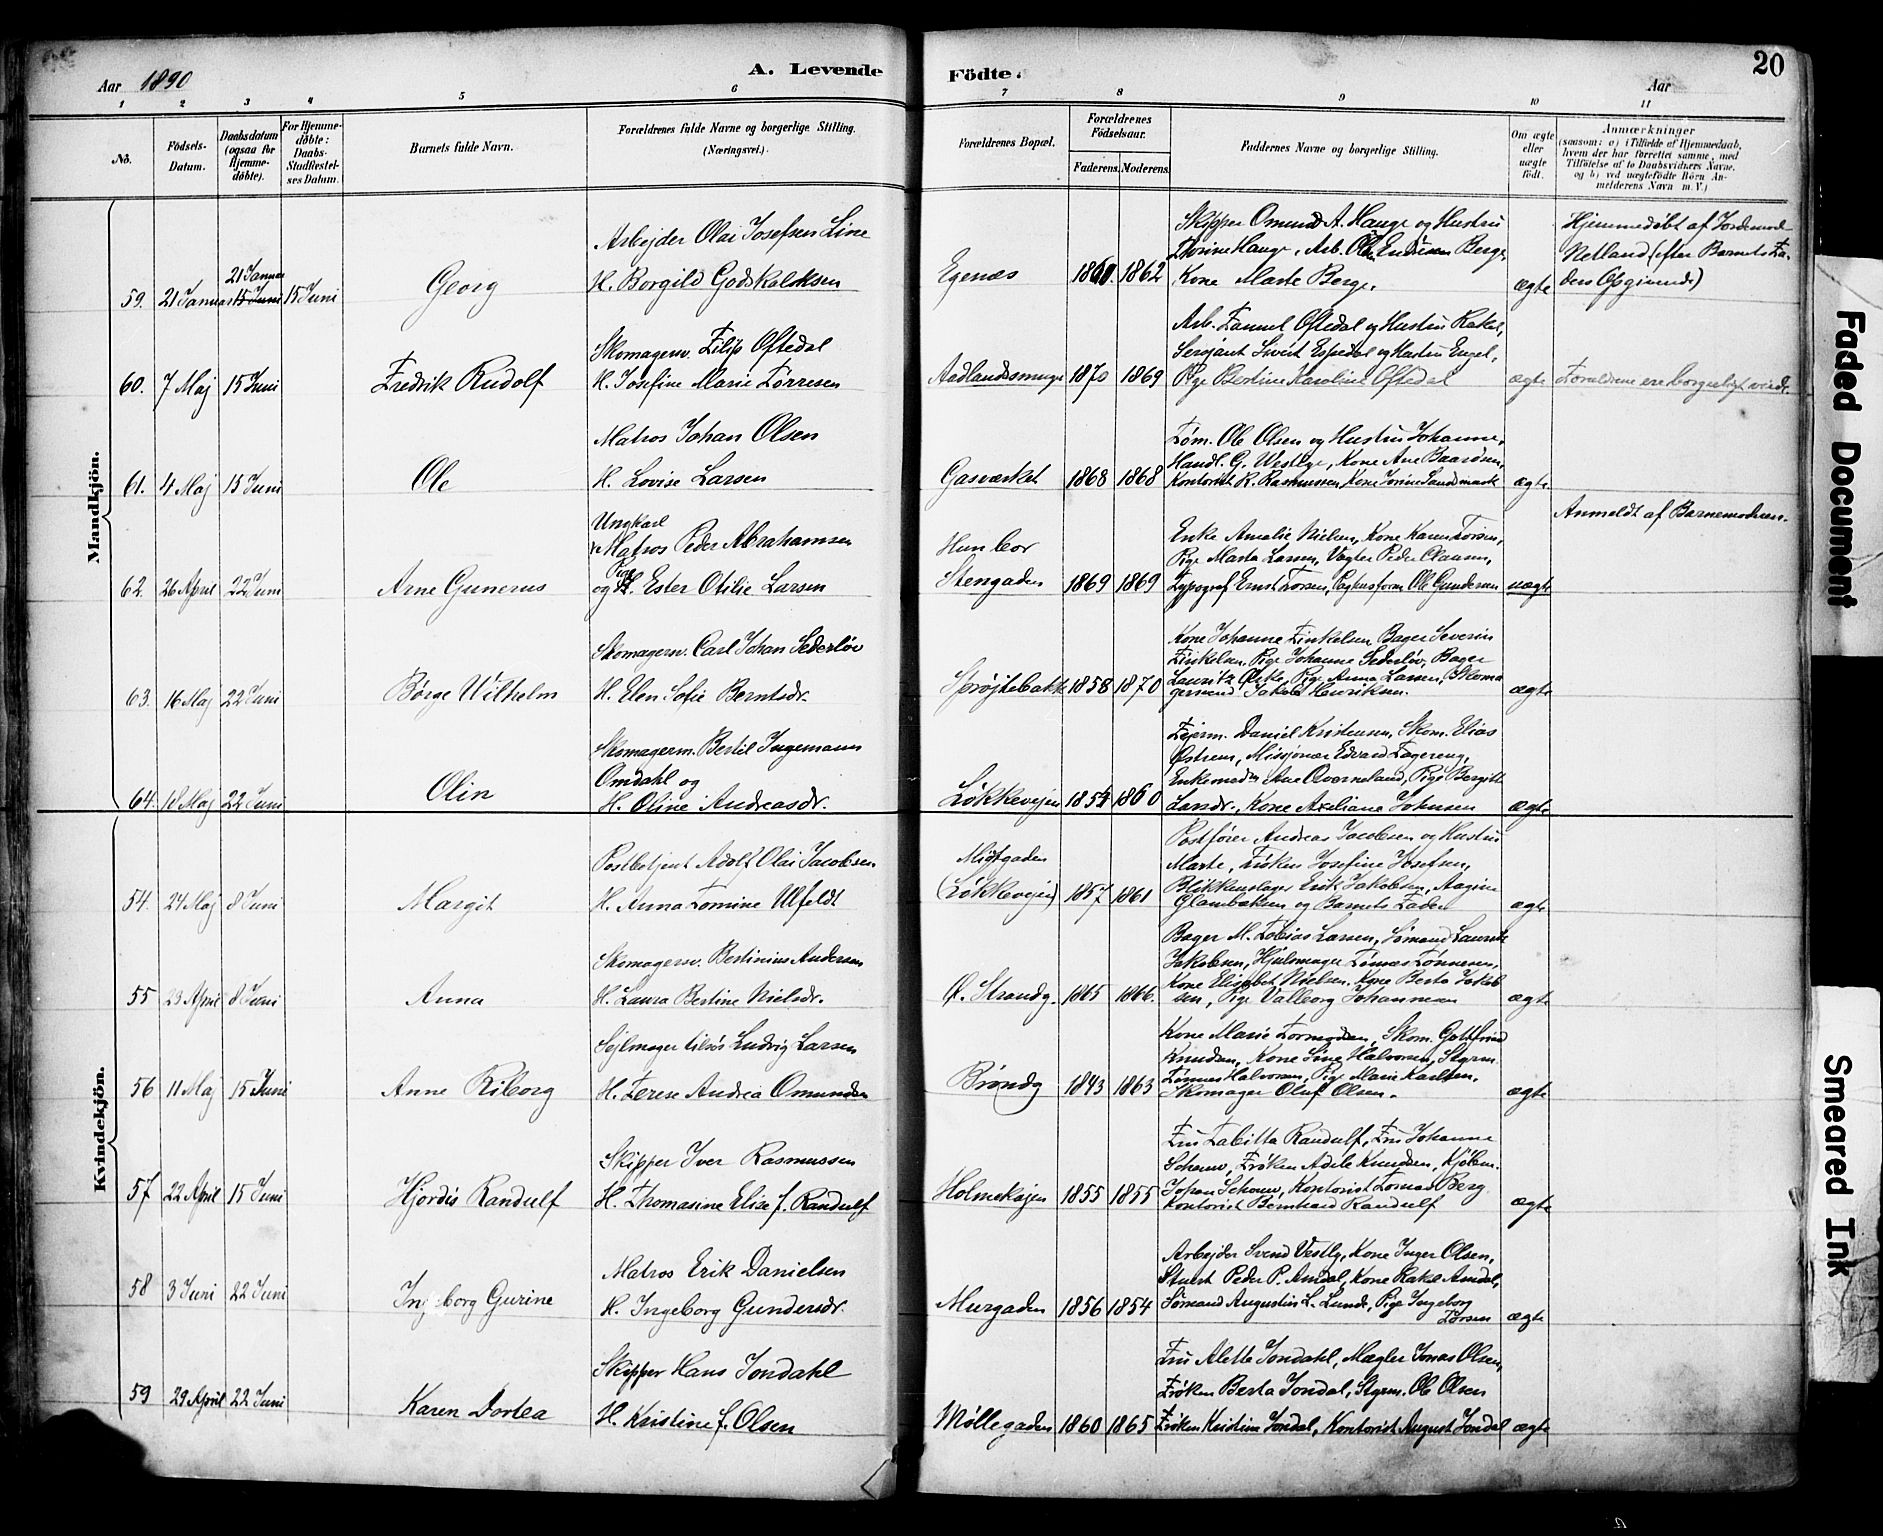 Aar 1890
A. Levende
Födte.
Aar
20
1 2 3 4 5 6 7 8 9 10 11
No.
Födsels-
Datum.
Daabsdatum
(ogsaa for
Hjemme-
döbte).
For Hjemme-
döbte:
Daabs-
Stadfæstel-
ses Datum.
Barnets fulde Navn.
Forældrenes fulde Navne og borgerlige Stilling.
(Næringsvei.)
Forældrenes Bopæl.
Forældrenes
Födselsaar.
Faderens. Moderens.
Faddernes Navne og borgerlige Stilling.
Om ægte
eller
uægte
födt.
Anmærkninger
(saasom: a) i Tilfælde af Hjemmedaab,
hvem der har forrettet samme, med
Tilföielse af to Daabsvidners Navne.
og b) ved uægtefödte Börn An-
melderens Navn m. V.)
Mandkjön.
59. 21 Januar 21 Januar 15 Juni 15 Juni
Georg
Arbejder Olai Josefsen Line
H. Borgild Godskalksen
Egenæs
1860. 1862
Skipper Omund A. Hauge og Hustru
Thorine Hauge, Arb. Ole Endresen Berge,
Kone Marte Berge.
ægte
Hjemmedøbt af Jordemod.
Netland (efter Barnets Fa-
ders Opgivende)
60. 7 Maj 15 Juni
Fredrik Rudolf
Skomagersv. Filip Oftedal
H. Josefine Marie Tørresen
Aadlandsmuge
1870 1869
Arb. Samuel Oftedal og Hustru Rakel,
Sersjant Sivert Espedal og Hustru Engel,
Pige Bertine Karoline Oftedal
ægte
Foreldrene ere borgerligt viede.
61. 4 Maj 15 Juni
Ole
Matros Johan Olsen
H. Lovise Larsen
Gasværket
1868 1868
Tøm. Ole Olsen og Hustru Johanne,
Handl. G. Westlye, Kone Ane Baardsen,
Kontorist R. Rasmussen, Kone Jorine Sandsmark
ægte
62. 26 April 22 Juni
Arne Gunerus
Ungkarl
Matros Peder Abrahamsen
og Pige Ester Otilie Larsen
Hun bor
Stengaden
1869 1869
Enke Amalie Nielsen, Kone Karen Torsen,
Pige Marta Larsen, Vægter Peder Clausen,
Typograf Ernst Torsen, Pakhusform. Ole Gundersen
uægte
Anmeldt af Barnemoderen.
63. 16 Maj 22 Juni
Børge Wilhelm
Skomagersv. Carl Johan Sederløv
H. Elen Sofie Berntsdr.
Sprøjtebakk
1858 1870
Kone Johanne Finkelsen, Bager Severin
Finkelsen, Pige Johanne Sederløv, Bager
Lauritz Pige Anna Larsen, Skoma
gersvend Jakob Henriksen.
ægte
64. 18 Maj 22 Juni
Olin
Skomagerm. Bertil Ingemann
Omdahl og
H. Oline Andreasdr.
Løkkevejen
1854 1860
Fejerm. Daniel Kristensen, Skom. Elias
Østrem, Missjonær Edvard Fagereng,
Enkemadm Ane Qverneland, Pige Bergitte
Larsdr., Kone Axeliane Johnsen
ægte
Kvindekjön.
54. 24 Maj 8 Juni
Margit
Postbetjent Adolf Olai Jacobsen
H. Anna Tomine Ulfeldt
Midtgaden
(Løkkevejen)
1857 1861
Postfører Andreas Jacobsen og Hustru
Marte, Frøken Josefine Josefsen,
Blikkenslager Erik Jakobsen, Aagine
Glambæksen og Barnets Fader
ægte
55 23 April 8 Juni
Anna
Skomagersv. Bertinius Andersen
H. Laura Bertine Nielsdr.
Ø. Strandg.
1865 1866.
Bager M. Tobias Larsen, Sømand Lauritz
Jakobsen, Hjulmager Tønnes Tønnesen,
Kone Elisabet Nielsen, Kone Berta Jakob
sen, Pige Valborg Johannesen
ægte
56 11 Maj 15 Juni
Anne Riborg
Sejlmager Ludvig Larsen
H. Terese Andrea Omundsen
Brøndg
1843 1863
Kone Marie Tormodsen, Skom. Gotfried
Knudsen, Kone Sine Halvorsen, Styrm.
Tønnes Halvorsen, Pige Marie Karlsen,
Skomager Oluf Olsen.
ægte
57 22 April 15 Juni
Hjordis Randulf
Skipper Iver Rasmussen
H. Thomasine Elise f. Randulf
Holmekajen
1855 1855
Fru Tabitta Randulf, Fru Johanne
Schouw, Frøken Adele Knudsen, Kjøbm.
Johan Schouw, Kontorist Tomas Berg
Kontorist Bernhard Randulf
ægte
58 3 Juni 22 Juni
Ingeborg Gurine
Matros Erik Danielsen
H. Ingeborg Gundersdr.
Murgaden
1856 1854
Arbejder Svend Vestly, Kone Inger Olsen,
Stuert Peder P. Amdal, Kone Rakel Amdal,
Sømand Augustin L. Lunde, Pige Ingeborg
Torsen
ægte
59 29 April 22 Juni
Karen Dortea
Skipper Hans Jondahl
H. Kristine f. Olsen
Møllegaden
1860 1865
Fru Alette Jondahl, Mægler Jonas Olsen,
Frøken Berta Jondal, Styrm. Ole Olsen
Frøken Kristine Jondal, Kontorist August Jondal
ægte
Faded Document
Smeared Ink